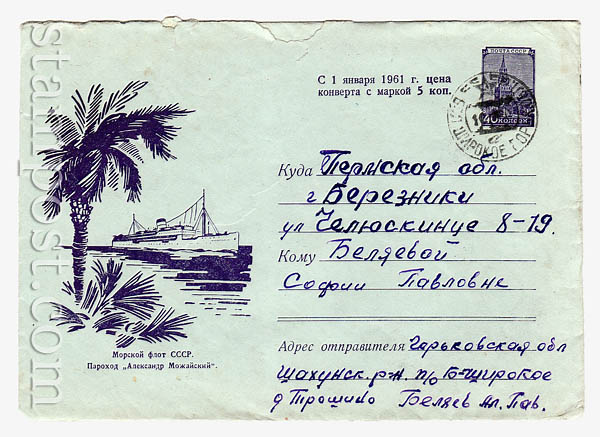 С 1 января 1961 г. цена
конверта с маркой 5 коп.
ПОЧТА СССР
40 КОПЕЕК
ШИРОКОЕ ГОР
Куда Пермская обл.
г Березники
ул Челюскинце 8-19.
Кому Беляевой
Софии Павловне
Морской флот СССР.
Пароход „Александр Можайский".
Адрес отправителя Горьковская обл
Шахунск. р-н. п/о Б-Широкое
д Трошино Беляев Ал. Пав.
stamp-post.com